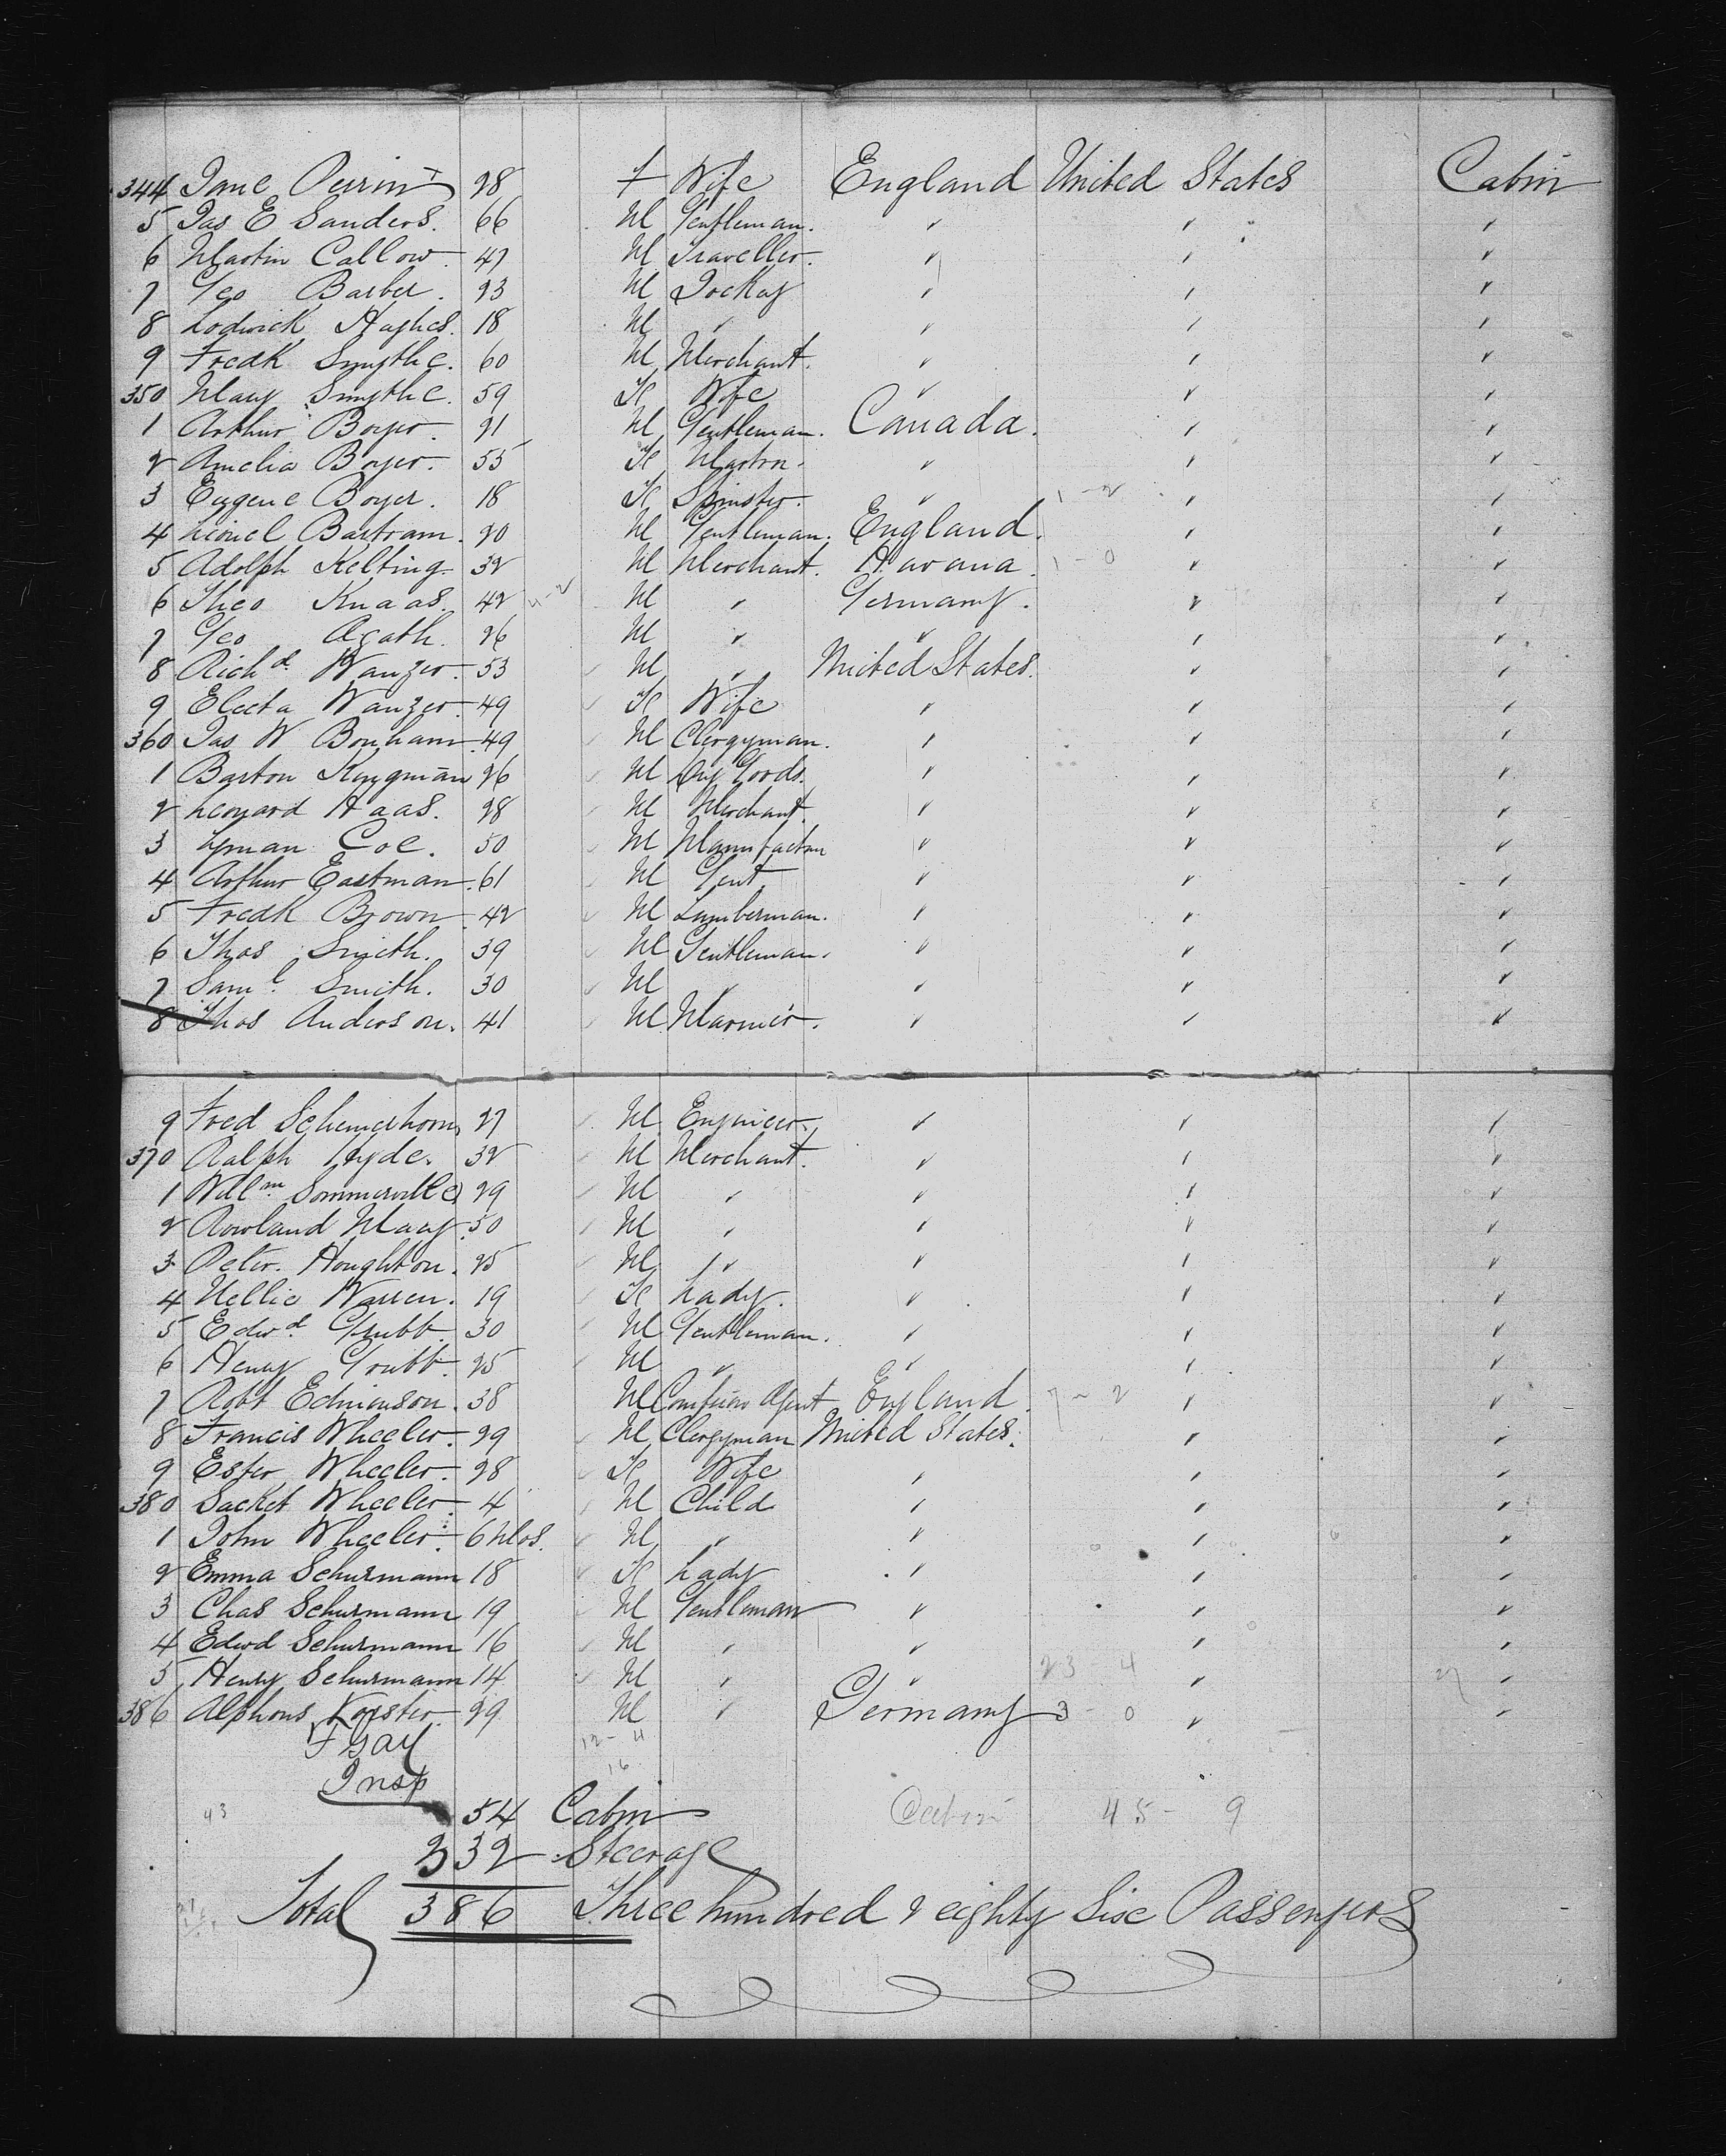 344 Jane Perrin 28 F Wife England United States Cabin
5 Jas E Sanders. 66 M Gentleman. " " "
6 Martin Callow. 47 M Traveller. " " "
7 Geo Barber. 23 M Jockay " " "
8 Lodwick Hughes. 18 M " " " "
9 Fredk Smythe. 60 M Merchant. " " "
350 Mary Smythe. 59 F Wife " " "
1 Arthur Boyer. 21 M Gentleman. Canada. " "
2 Amelia Boyer. 55 F Matron. " " "
3 Eugene Boyer. 18 F Spinster. " 1-2 " "
4 Lionel Bartram. 20 M Gentleman. England. " "
5 Adolph Kelting. 32 M Merchant. Havana. 1-0 " "
6 Theo Knaas. 42 M " Germany. " "
7 Geo Agath. 26 M " " " "
8 Richd. Wanzer. 53 M " United States. " "
9 Electa Wanzer. 49 F Wife " " "
360 Jas W Bonham. 49 M Clergyman. " " "
1 Barton 26 M Dry Goods. " " "
2 Leonard Haas. 28 M Merchant. " " "
3 Lyman Coe. 50 M Manufactur " " "
4 Arthur Eastman. 61 M Gent " " "
5 Fredk Brown. 42 M Lumberman. " " "
6 Thos Smith. 39 M Gentleman. " " "
7 Saml. Smith. 30 M " " " "
8 Thos Anderson. 41 M Marnier. " " "
9 Fred Schemerhorn 27 M Engineer. " " "
370 Ralph Hyde. 32 M Merchant. " " "
1 Willm Sommerville 29 M " " " "
2 Rowland 50 M " " " "
3 Peter. Houghton. 25 M " " " "
4 Nellie Warren. 19 F Lady. " " "
5 Edwd. Grubb. 30 M Gentleman. " " "
6 Henry Grubb. 25 M " " " "
7 Robt Edmonson. 38 M Agent England. 7-2 " "
8 Francis Wheeler. 29 M Clergyman United States. " "
9 Ester Wheeler. 28 F Wife " " "
380 Sacket Wheeler. 4 M Child " " "
1 John Wheeler. 6 Mos. M " " " "
2 Emma Schurmann 18 F Lady " " "
3 Chas Schurmann 19 M Gentleman " " "
4 Edwd Schurmann 16 M " " " "
5 Henry Schurmann 14 M " " 23-4 " 27 "
386 Alphons Korster. 29 M " Germany 3-0 " "
F Gay 12-4
Insp 16
43 54 Cabin Cabin 45-9
332 Steerage
Total 386 Three hundred & eighty Six Passengers